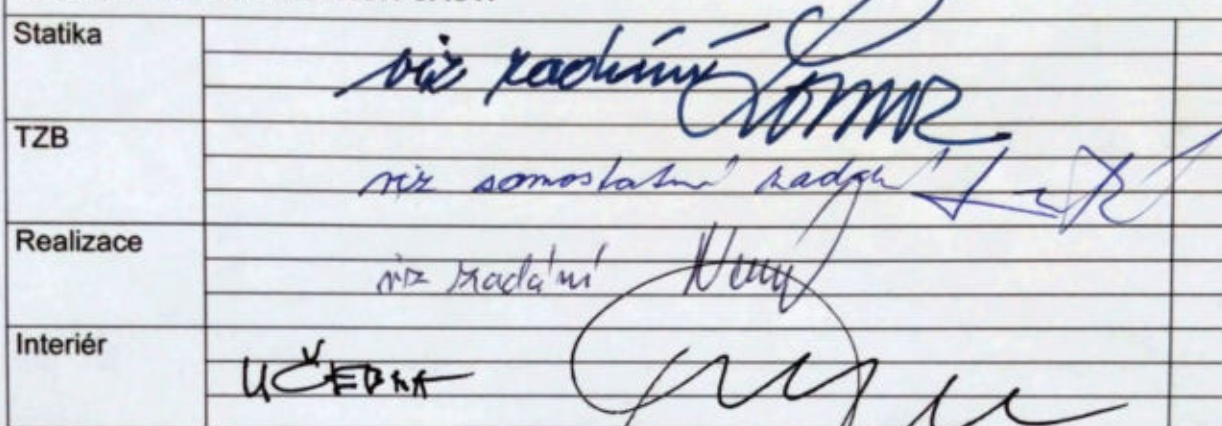 Statika
viz zadání
TZB
viz samostatné zadání
Realizace
viz zadání
Interiér
UČEBNA